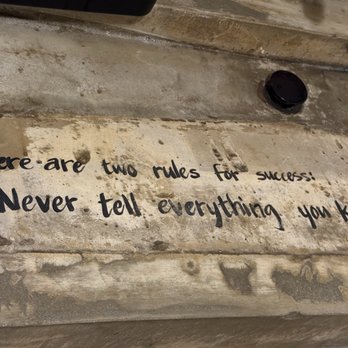 ere are two rules for success:
Never tell everything you k